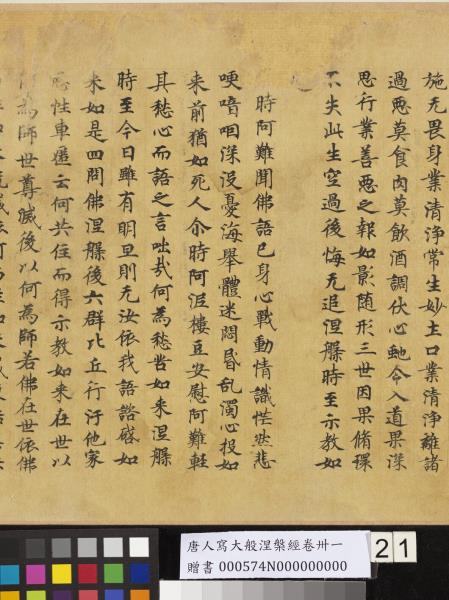 施无畏身業清淨常生妙土口業清淨離諸
過惡莫食肉莫飲酒調伏心虵令入道果深
思行業善惡之報如影随形三世因果脩環
不失此生空過後悔无追涅槃時至示教如
時阿難聞佛語已身心戰動情識恾然悲
哽喑咽深没憂海舉體迷悶昏乱濁心投如
来前猶如死人尒時阿泥樓豆安慰阿難輕
其愁心而語之言咄哉何為愁苦如来涅槃
時至今日雖有明旦則无汝依我語諮啓如
来如是四問佛涅槃後六群比丘行汙他家
惡性車匿云何共住而得示教如来在世以
佛為師世尊滅後以何為師若佛在世依佛
唐人寫大般涅槃經卷卅一
贈書 000574N000000000
21